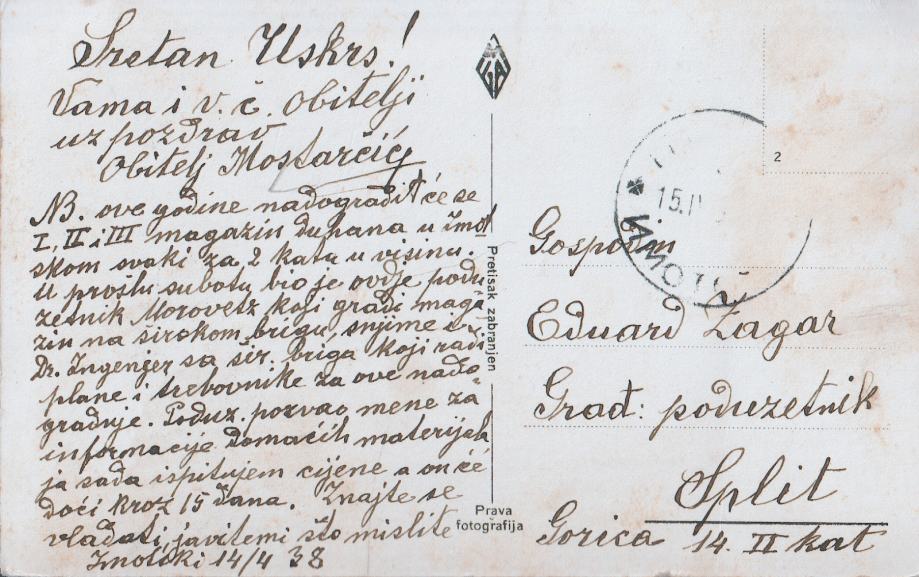 Sretan Uskrs!
Vama i v. č. obitelji
uz pozdrav
Obitelj Mostarčić
NB. ove godine nadogradit će se
I, II i III magazin duhana u imot
skom svaki za 2 kata u visinu.
U prošlu subotu bio je ovdje podu
zetnik Morovetz koji gradi maga
zin na širokom brigu, snjime i
Dr. Ingenjer sa šir. briga koji radi
plane i trebovnike za ove nado
gradnje. Poduz. pozvao mene za
informacije domaćih materijala
ja sada ispitujem cijene a on će
doći kroz 15 dana. Znajte se
vladati, javitemi što mislite
Imotski 14/4 38
MIGA
Pretisak zabranjen
Prava
fotografija
2
15.IV
Gospodin
Eduard Žagar
Građ: poduzetnik
Split
Gorica 14. II kat